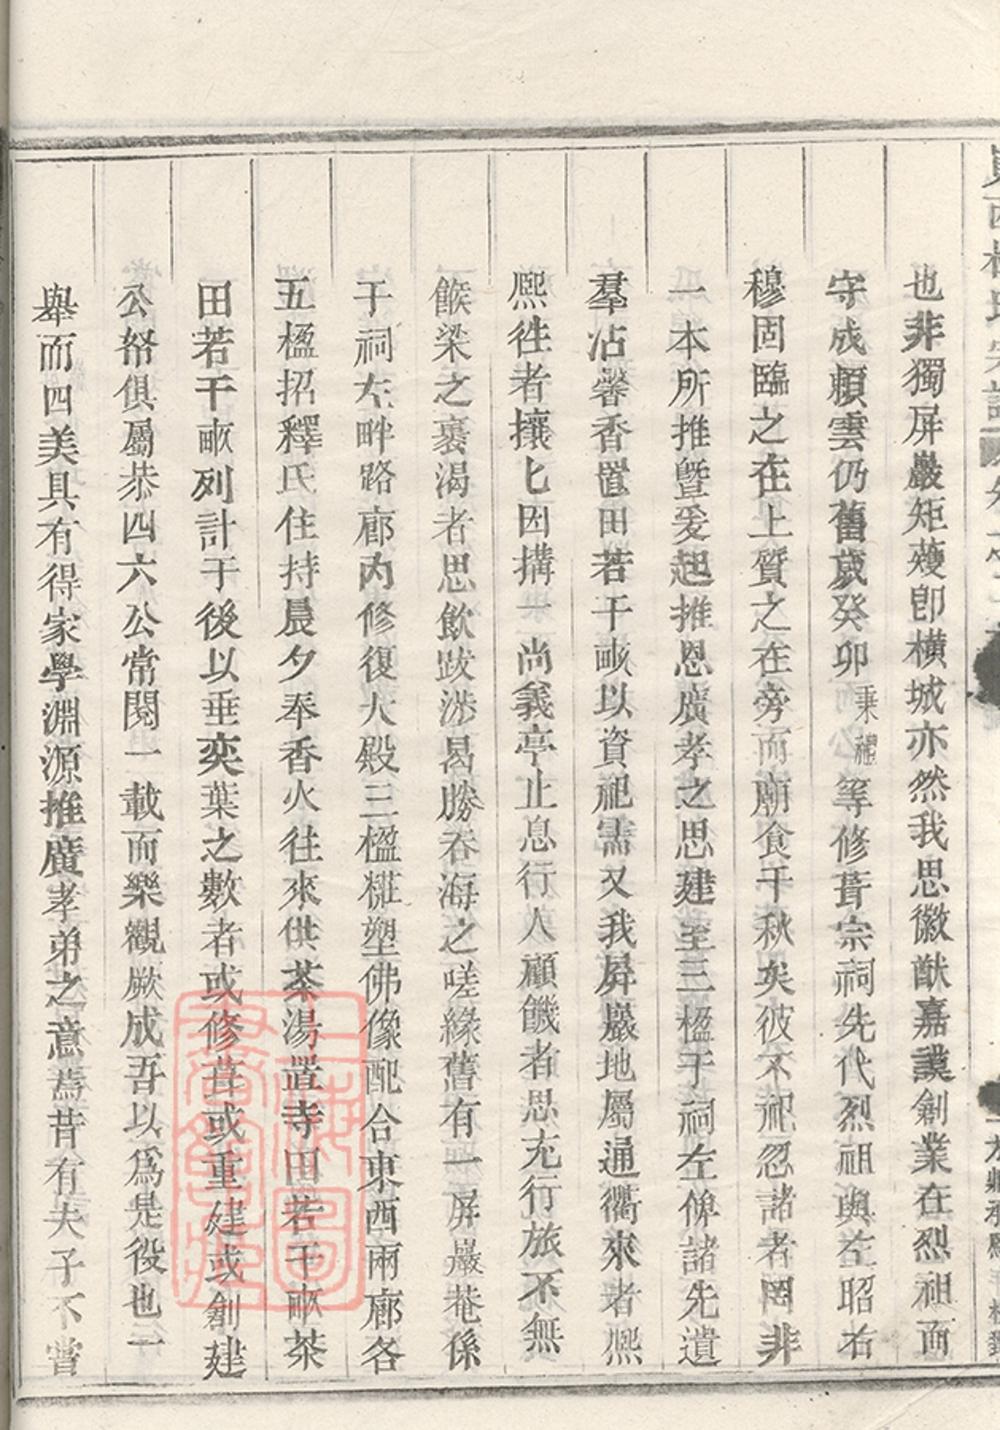 也非獨屏巖矩蒦卽橫城亦然我思徽猷嘉謨創業在烈祖而
守成賴雲仍舊歲癸卯秉禮等修葺宗祠先代烈祖與左昭右
穆固臨之在上質之在旁而廟食千秋矣彼不祀忽諸者罔非
一本所推曁爰起推恩廣孝之思建至三楹于祠左俾諸先遺
羣沾馨香置田若干畝以資祀需又我屛巖地屬通衢來者熙
熙徃者攘匕因搆一尚義亭止息行人顧饑者思充行旅不無
餱梁之裹渴者思飲跋涉曷勝呑海之嗟緣舊有一屏巖菴係
于祠左畔路廊內修復大殿三楹糚塑佛像配合東西兩廊各
五楹招釋氏住持晨夕奉香火往來供茶湯置寺田若干畝茶
田若干畝列計于後以垂奕葉之數者或修葺或重建或創建
公帑俱屬恭四六公常閱一載而樂觀厥成吾以爲是役也一
舉而四美具有得家學淵源推廣孝弟之意焉昔有夫子不嘗